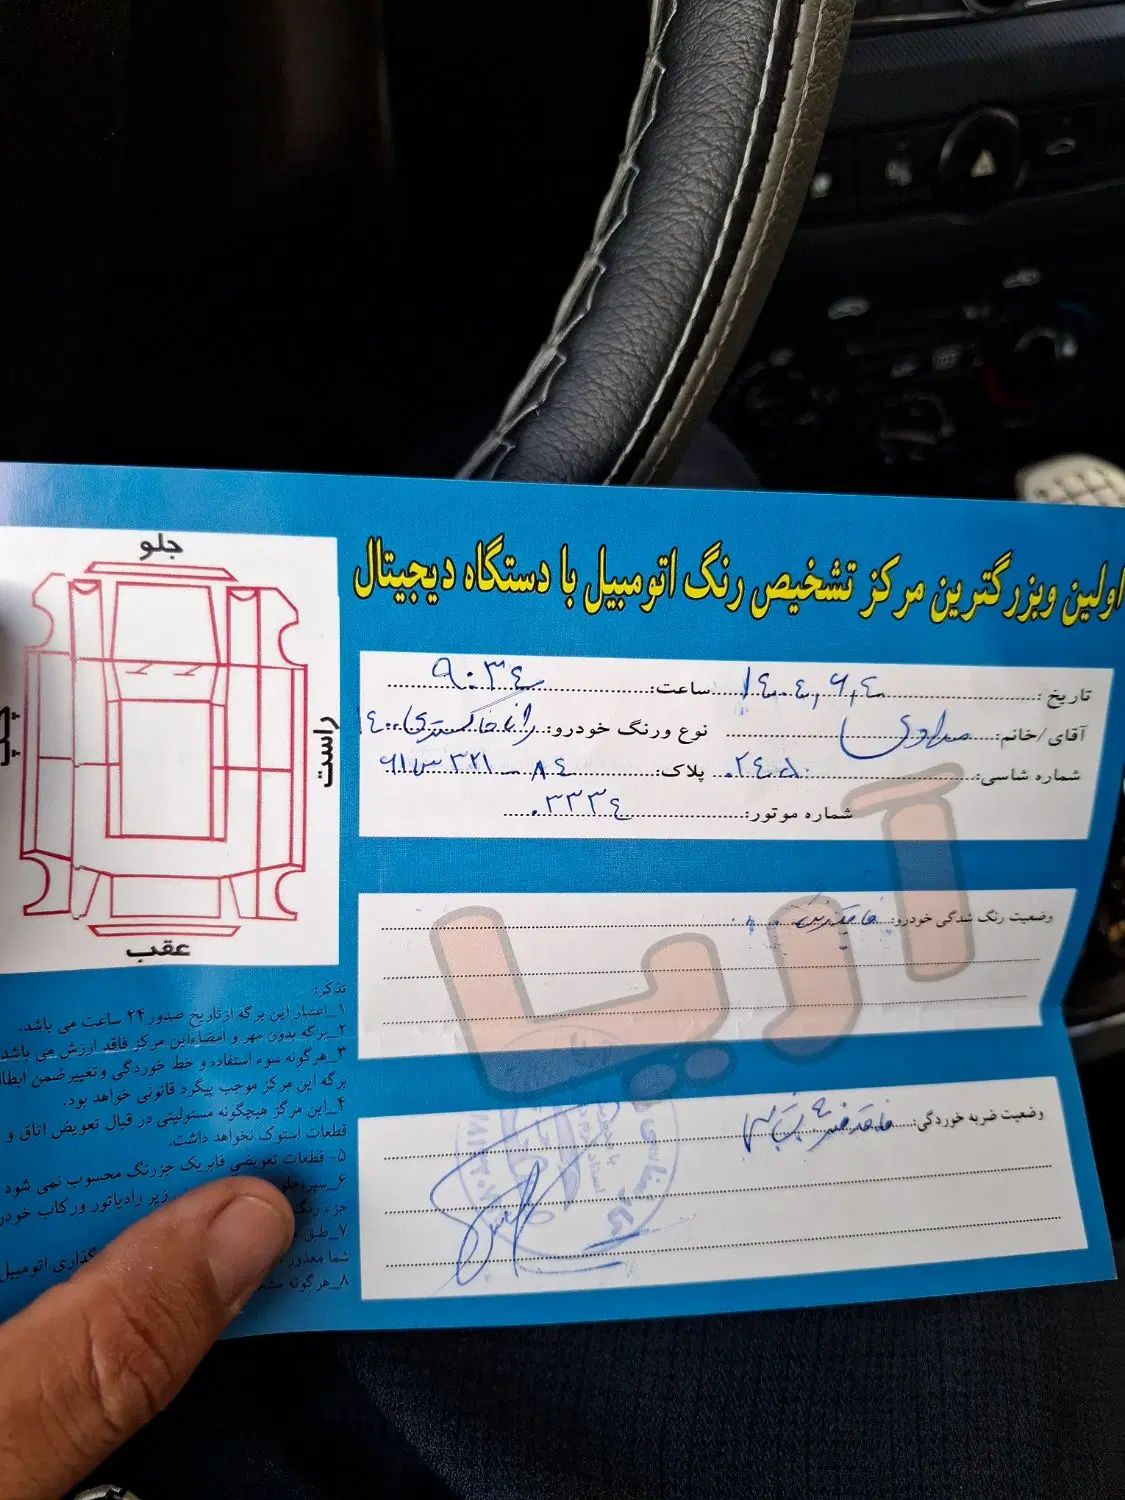 اولین وبزرگترین مرکز تشخیص رنگ اتومبیل با دستگاه دیجیتال
تاریخ: ۱۴۰۴,۶,۴ ساعت: ۹:۳۴
آقای /خانم: نوع ورنگ خودرو: رانا خاکستری ۱۴۰۰
شماره شاسی: پلاک: ۶۱ س ۳۲۱ - ۸۴
شماره موتور: ۰۳۳۳۴
وضعیت رنگ شدگی خودرو: فاقد رنگ
وضعیت ضربه خوردگی: فاقد ضربه
آریا
جلو
راست
چپ
عقب
تذکر:
۱_اعتبار این برگه از تاریخ صدور ۲۴ ساعت می باشد.
۲_برگه بدون مهر و امضاءاین مرکز فاقد ارزش می باشد
۳_هرگونه سوء استفاده و خط خوردگی و تغییر ضمن ابطال
برگه این مرکز موجب پیگرد قانونی خواهد بود.
۴_این مرکز هیچگونه مسئولیتی در قبال تعویض اتاق و
قطعات استوک نخواهد داشت.
۵- قطعات تعویضی فابریک جزرنگ محسوب نمی شود
۶_سپرجلو زیر رادیاتور ورکاب خودر
جزء رنگ
۷_طبق
شما معذور گذاری اتومبیل
۸_هرگونه